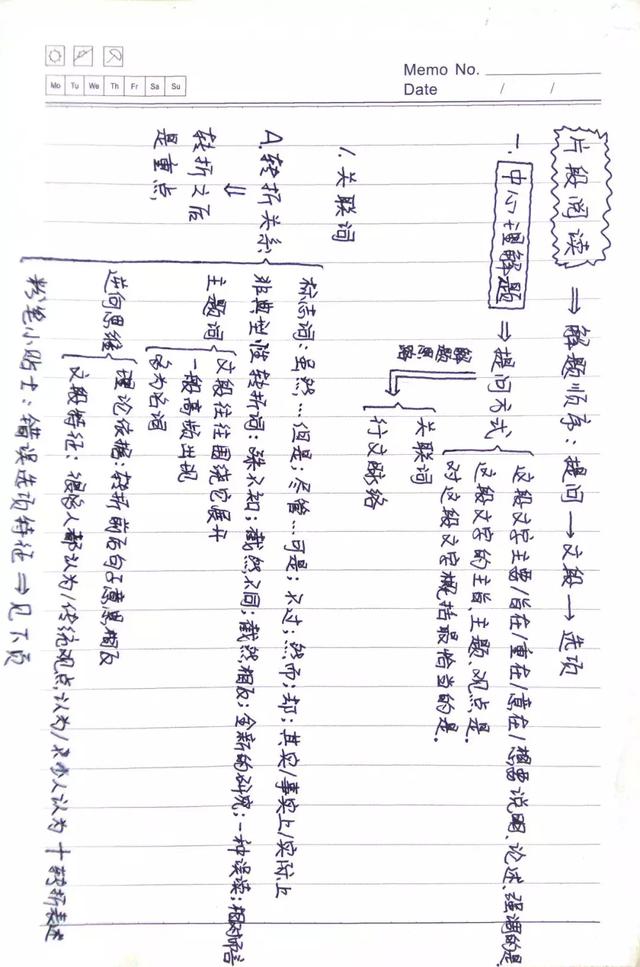 Memo No.
Date / /
Mo Tu We Th Fr Sa Su
片段阅读 ⇒ 解题顺序：提问 → 文段 → 选项
一. 中心理解题 ⇒ 提问方式
这段文字主要/旨在/重在/意在/想要说明、论述、强调的是
这段文字的主旨、主题、观点是.
对这段文字概括最恰当的是.
解题思路
关联词
行文脉络
1. 关联词
A. 转折关系
⇓
转折之后
是重点,
标志词：虽然…但是；尽管…可是；不过；…然而；却；其实/事实上/实际上
非典型性转折词：殊不知；截然不同；截然相反；全新的研究；一种误读；相对而言
主题词
文段往往围绕它展开
一般高频出现
多为名词
逆向思维
理论依据：转折前后句子意思相反
文段特征：很多人都认为/传统观点认为/不少人认为 + 转折表述
粉笔小贴士：错误选项特征 ⇒ 见下页